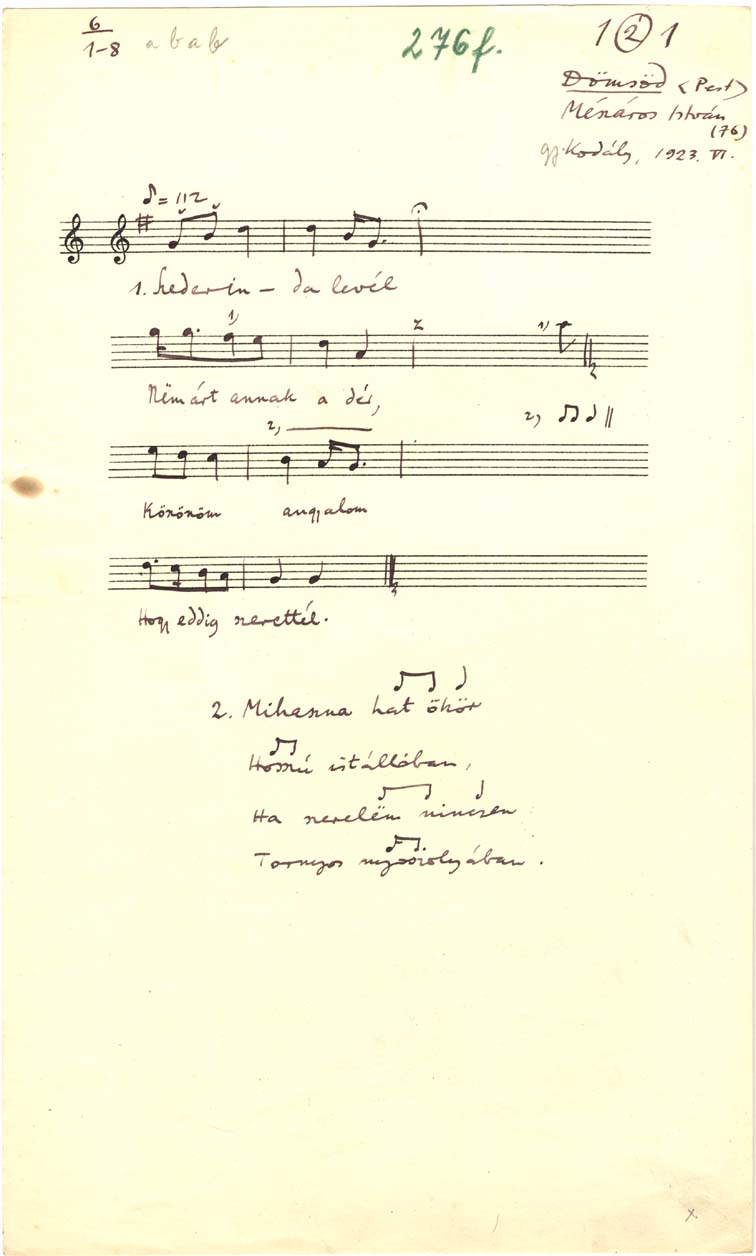 6
1-8 a b a b
276f.
1 2 1
Dömsöd (Pest)
Mészáros István
(76)
gy. Kodály, 1923. VI.
= 112
1. Szederin – da levél
1)
2
1)
2
Nëm árt annak a dér,
2,
2,
Köszönöm angyalom
Hogy eddig szerettél.
2. Mihaszna hat ökör
Hosszú istállóban,
Ha szerelëm nincsen
Tornyos nyoszolyában.
x